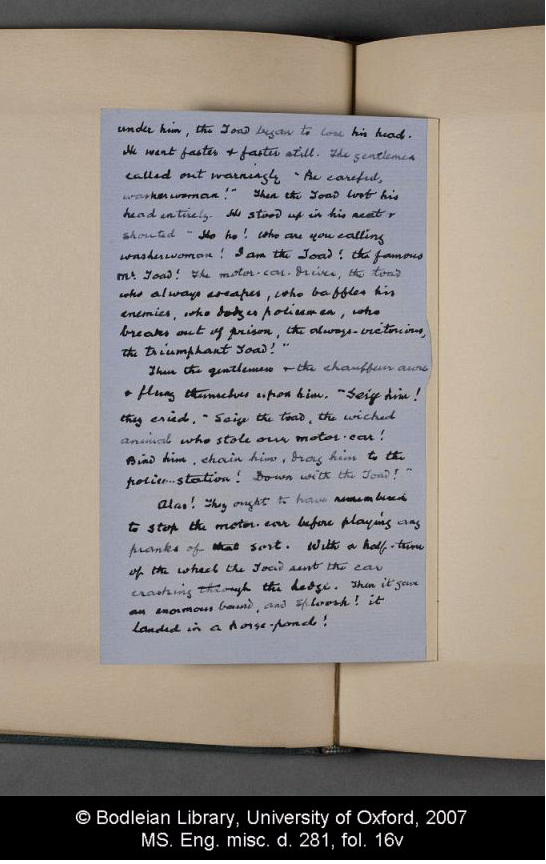 under him, the Toad began to lose his head.
He went faster & faster still. The gentlemen
called out warningly "Be careful,
washerwoman!" Then the Toad lost his
head entirely. He stood up in his seat &
shouted "Ho ho! Who are you calling
washerwoman! I am the Toad! the famous
Mr. Toad! The motor-car-driver, the toad
who always escapes, who baffles his
enemies, who dodges policemen, who
breaks out of prison, the always-victorious,
the triumphant Toad!"
Then the gentlemen & the chauffeur arose
& flung themselves upon him. "Seize him!
they cried, "Seize the toad, the wicked
animal who stole our motor-car!
Bind him, chain him, drag him to the
police-station! Down with the Toad!"
Alas! They ought to have remembered
to stop the motor-car before playing any
pranks of that sort. With a half-turn
of the wheel the Toad sent the car
crashing through the hedge. Then it gave
an enormous bound, and splosh! it
landed in a horse-pond!
© Bodleian Library, University of Oxford, 2007
MS. Eng. misc. d. 281, fol. 16v